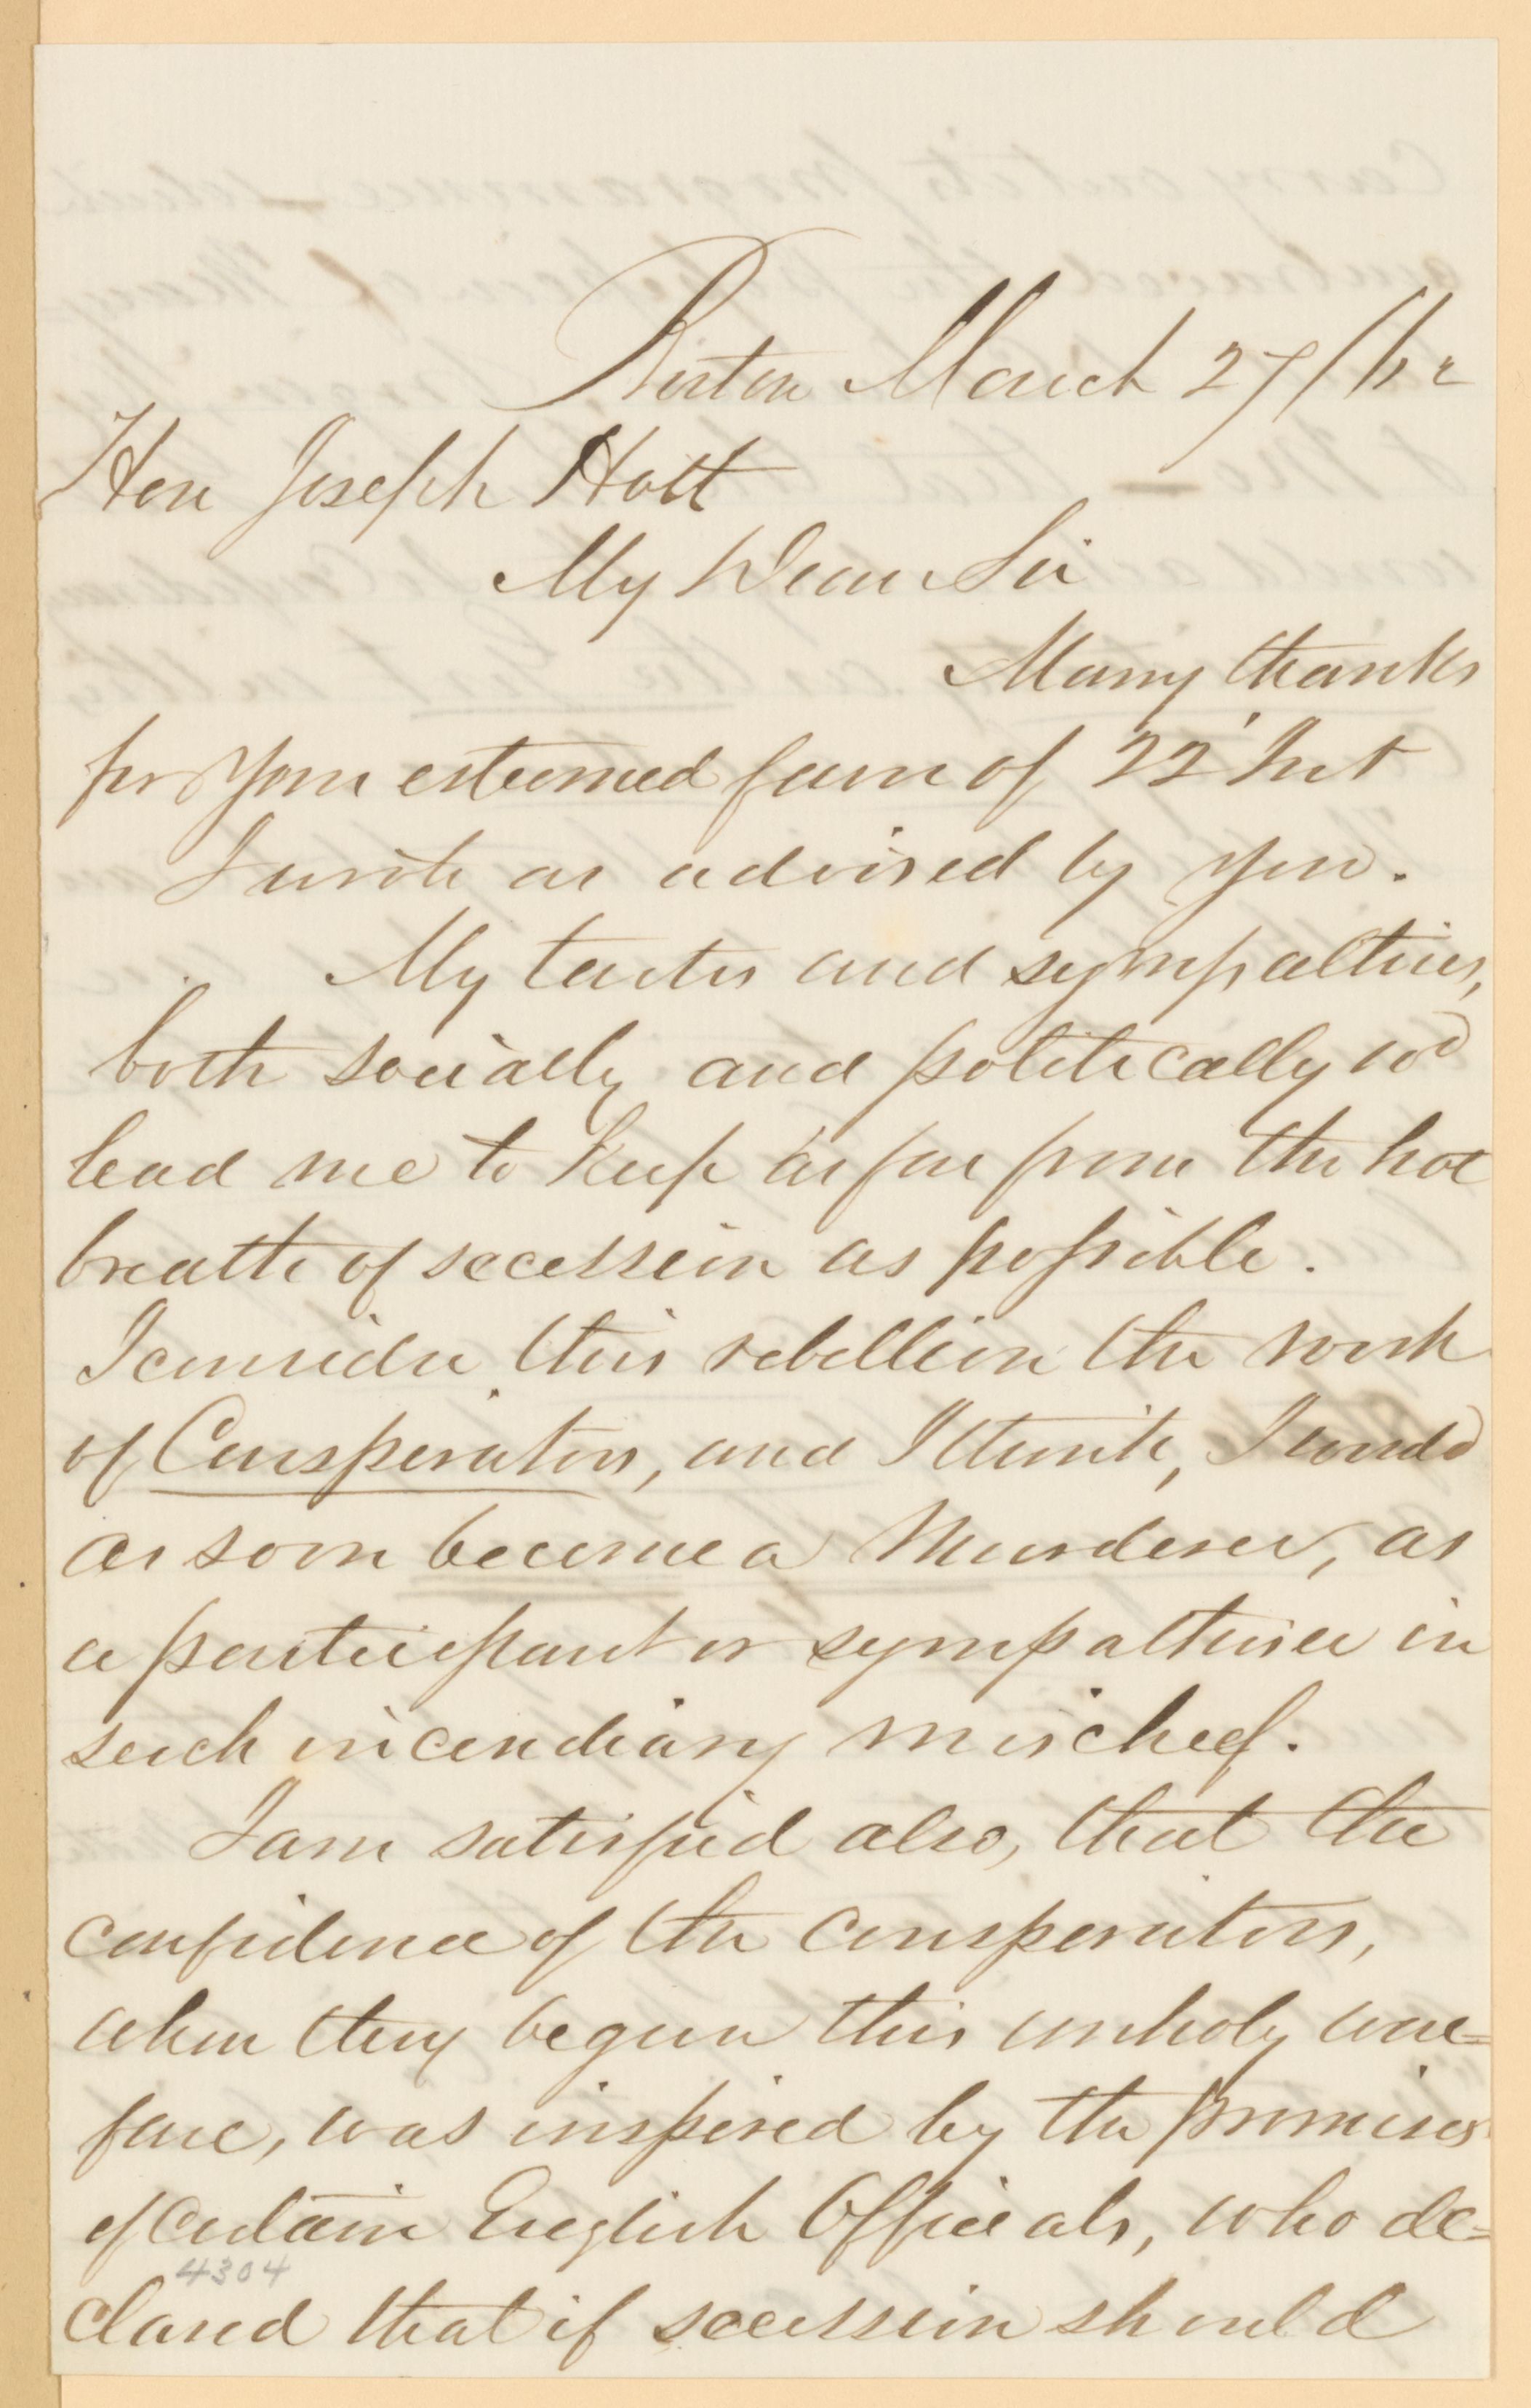 Boston March 27/62
Hon Joseph Holt
My Dear Sir
Many thanks
for your esteemed favor of 22' Inst
I write as advised by you.
My tastes and sympathies,
both socially and politically wd
lead me to keep as far from the hot
breath of secession as possible.
I consider this rebellion the work
of Consperators, and I think, I would
as soon become a Murderer, as
a participant or sympathiser in
such incendiary mischeef.
I am satisfied also, that the
confidence of the consperators,
when they begun this unholy war=
fare, was inspired by the promises
of certain English Officials, who de=
4304
clared that if secession should